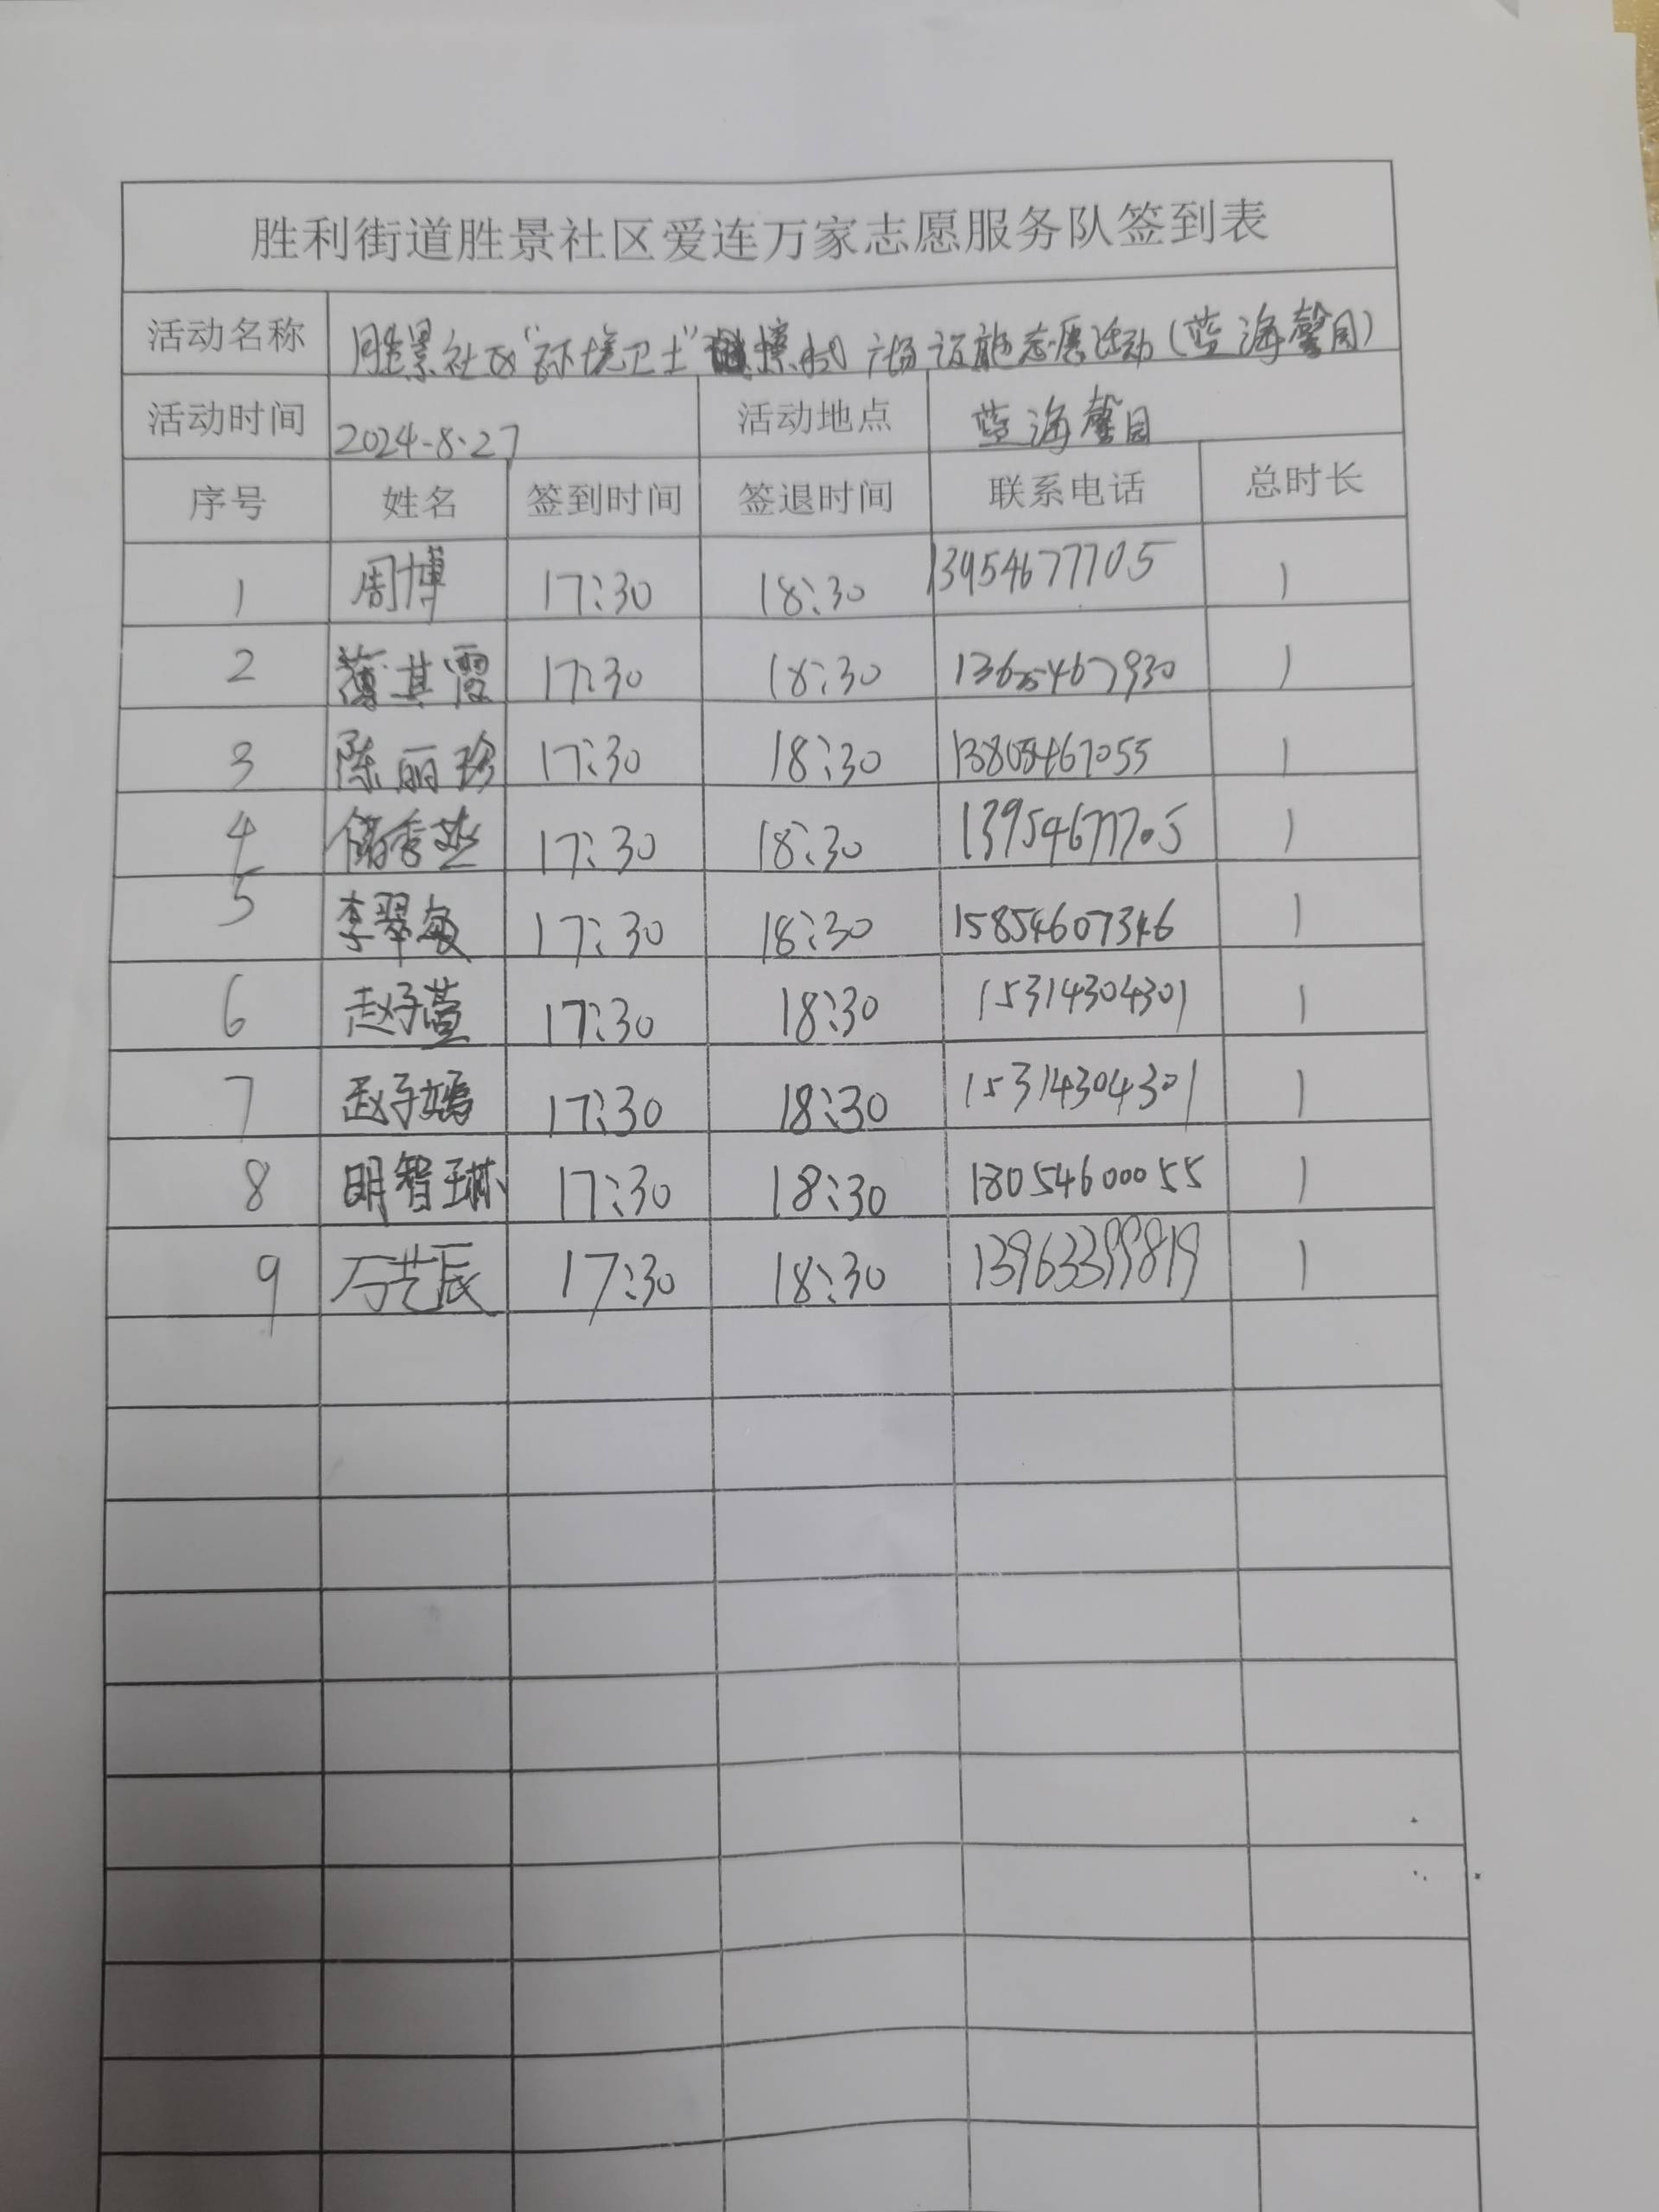 胜利街道胜景社区爱连万家志愿服务队签到表
活动名称 胜景社区"环境卫士"擦拭广场设施志愿活动(蓝海馨园)
活动时间 2024-8·27 活动地点 蓝海馨园
序号 姓名 签到时间 签退时间 联系电话 总时长
1 周博 17:30 18:30 13954677705 1
2 薄其霞 17:30 18:30 13625467930 1
3 陈丽珍 17:30 18:30 13805467055 1
4 17:30 18:30 13954677705 1
5 李翠敏 17:30 18:30 15854607346 1
6 赵子萱 17:30 18:30 15314304301 1
7 赵子嫣 17:30 18:30 15314304301 1
8 明智琳 17:30 18:30 18054600055 1
9 万艺辰 17:30 18:30 13963399819 1